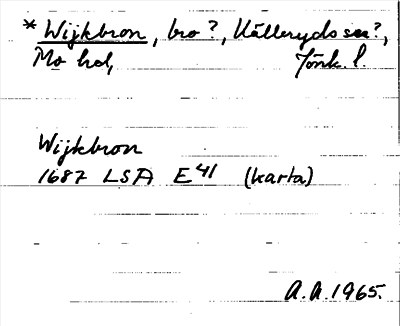 * Wijkbron, bro?, Källeryds sn?,
Mo hd, Jönk. l.
Wijkbron
1687 LSA E41 (karta)
A.A. 1965.